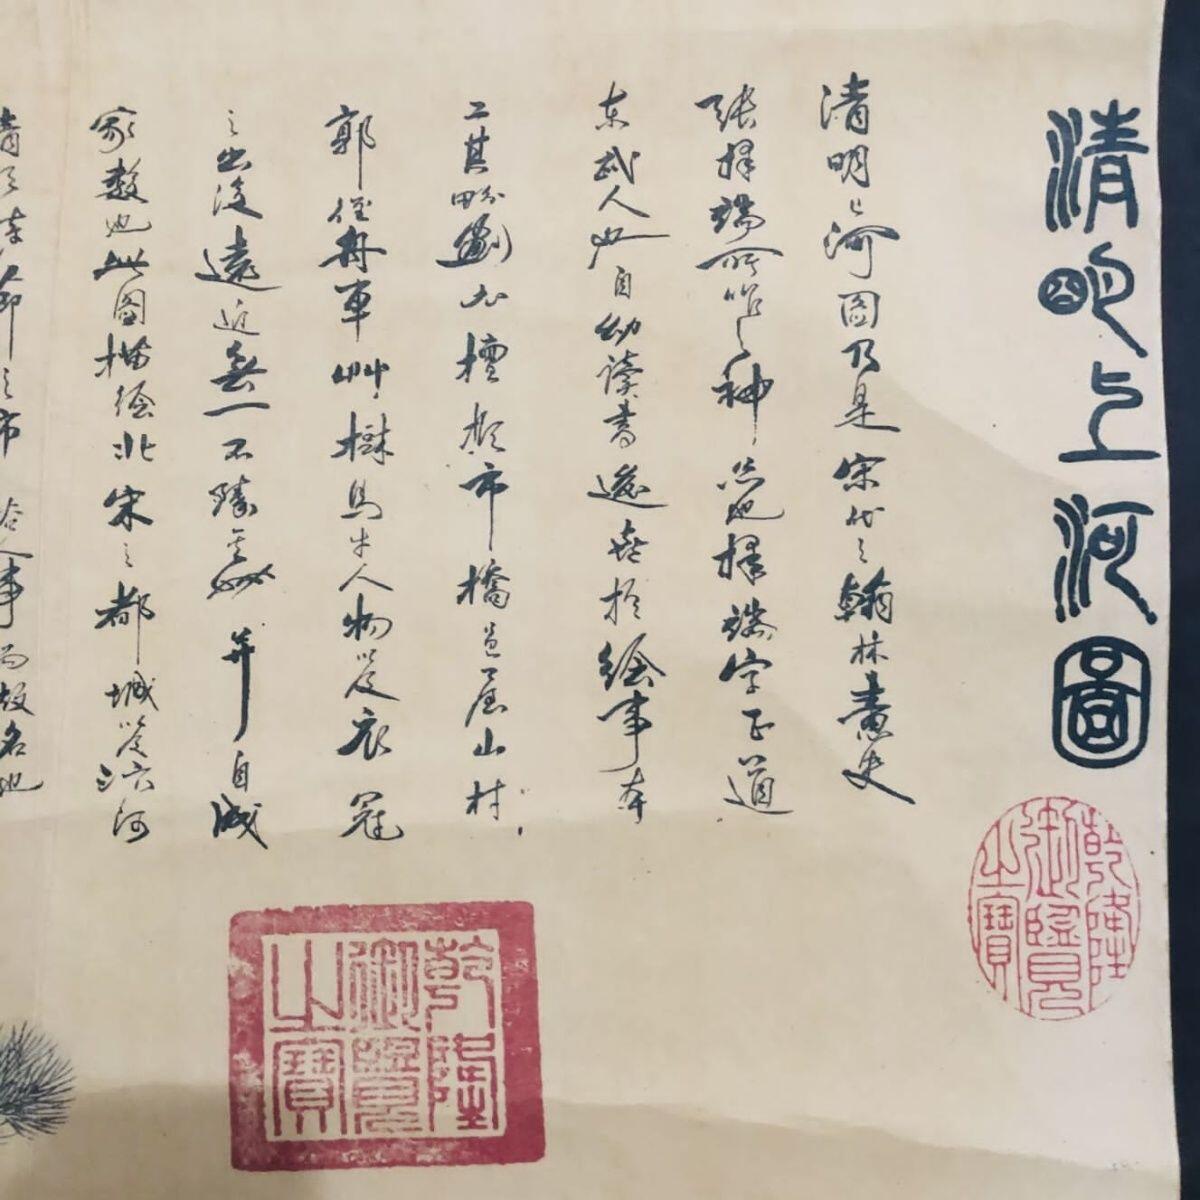 清明上河圖
清明上河圖乃是宋代之翰林畫史
張擇端所作之神品也擇端字正道
東武人也自幼讀書遊於繪事本
工其界劃尤檀於市橋邑屋山村
郭徑舟車艸樹馬牛人物以及衣冠
之出沒遠近無一不臻其妙并自成
家數也此圖描繪北宋之都城以及汴河
清明
之市
事而故名也
乾隆御覽之寶
乾隆御覽之寶